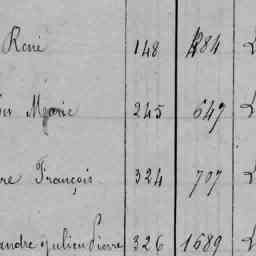 René 148 484
Marie 245 647
re François 324 707
andre Julien Pierre 326 1689